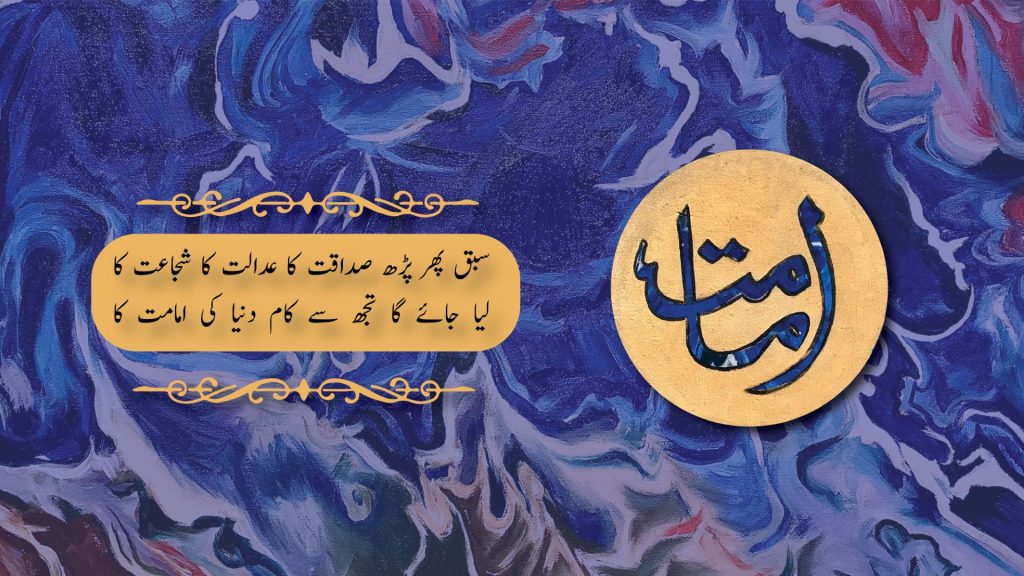 سبق پھر پڑھ صداقت کا عدالت کا شجاعت کا
لیا جائے گا تجھ سے کام دنیا کی امامت کا
امامت